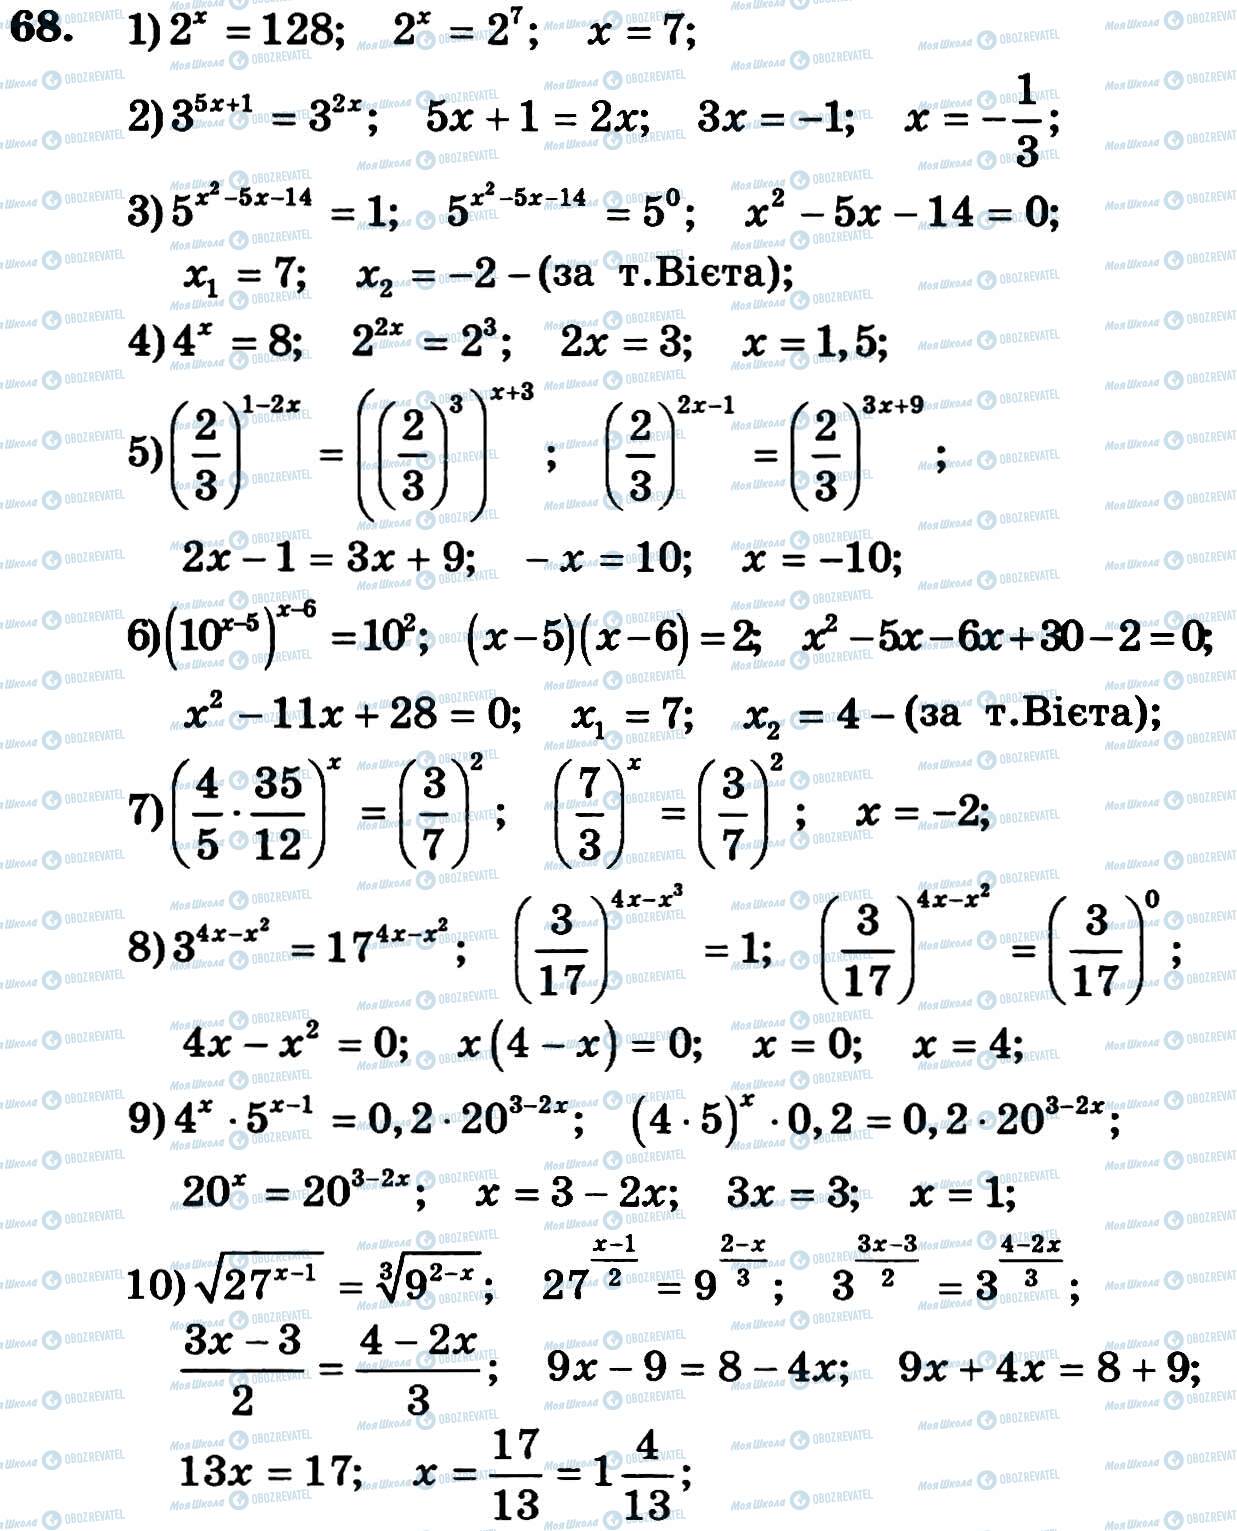 68. 1) 2^x = 128; 2^x = 2^7; x = 7;
2) 3^{5x+1} = 3^{2x}; 5x + 1 = 2x; 3x = −1; x = −\frac{1}{3};
3) 5^{x^2−5x−14} = 1; 5^{x^2−5x−14} = 5^0; x^2 − 5x − 14 = 0;
x_1 = 7; x_2 = −2 – (за т.Вієта);
4) 4^x = 8; 2^{2x} = 2^3; 2x = 3; x = 1,5;
5) (\frac{2}{3})^{1−2x} = ((\frac{2}{3})^3)^{x+3}; (\frac{2}{3})^{2x−1} = (\frac{2}{3})^{3x+9};
2x − 1 = 3x + 9; −x = 10; x = −10;
6) (10^{x−5})^{x−6} = 10^2; (x − 5)(x − 6) = 2; x^2 − 5x − 6x + 30 − 2 = 0;
x^2 − 11x + 28 = 0; x_1 = 7; x_2 = 4 – (за т.Вієта);
7) (\frac{4}{5} · \frac{35}{12})^x = (\frac{3}{7})^2; (\frac{7}{3})^x = (\frac{3}{7})^2; x = −2;
8) 3^{4x−x^2} = 17^{4x−x^2}; (\frac{3}{17})^{4x−x^3} = 1; (\frac{3}{17})^{4x−x^2} = (\frac{3}{17})^0;
4x − x^2 = 0; x(4 − x) = 0; x = 0; x = 4;
9) 4^x · 5^{x−1} = 0,2 · 20^{3−2x}; (4 · 5)^x · 0,2 = 0,2 · 20^{3−2x};
20^x = 20^{3−2x}; x = 3 − 2x; 3x = 3; x = 1;
10) \sqrt{27^{x−1}} = \sqrt[3]{9^{2−x}}; 27^{\frac{x−1}{2}} = 9^{\frac{2−x}{3}}; 3^{\frac{3x−3}{2}} = 3^{\frac{4−2x}{3}};
\frac{3x − 3}{2} = \frac{4 − 2x}{3}; 9x − 9 = 8 − 4x; 9x + 4x = 8 + 9;
13x = 17; x = \frac{17}{13} = 1\frac{4}{13};
Моя Школа OBOZREVATEL